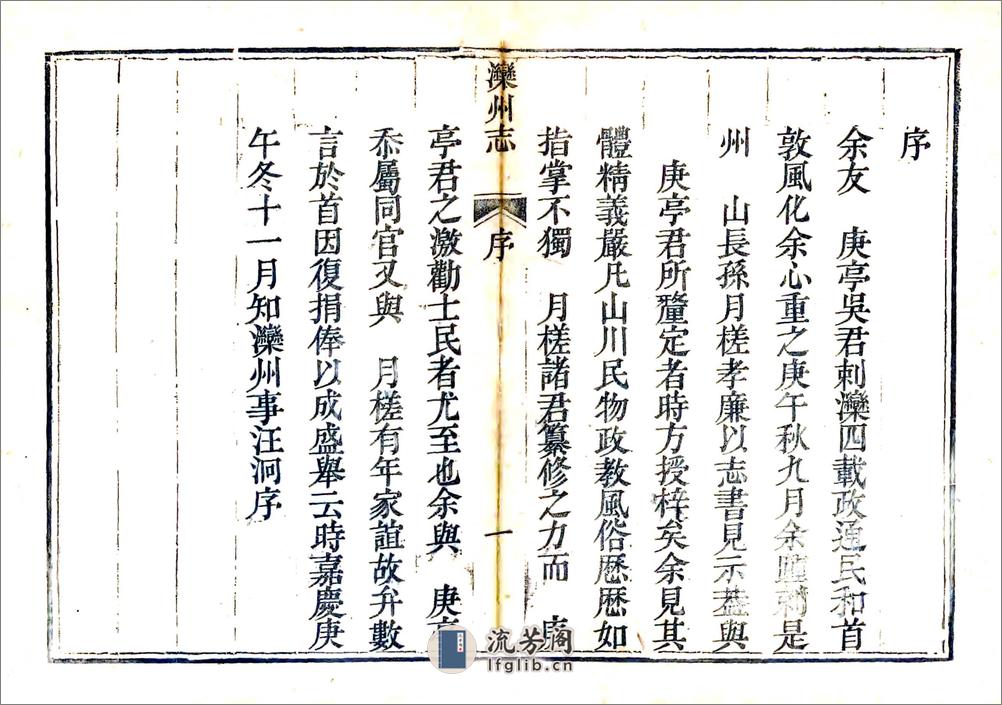 序
余友　庚亭吳君刺灤四載政通民和首
敦風化余心重之庚午秋九月余踵刺是
州　山長孫月槎孝廉以志書見示葢與
庚亭君所釐定者時方授梓矣余見其
體精義嚴凡山川民物政教風俗歷歷如
指掌不獨　月槎諸君纂修之力而　庚
灤州志
序
一
亭君之激勸士民者尤至也余與　庚亭
忝屬同官又與　月槎有年家誼故弁數
言於首因復捐俸以成盛舉云時嘉慶庚
午冬十一月知灤州事汪泂序
流芳閣
lfglib.cn